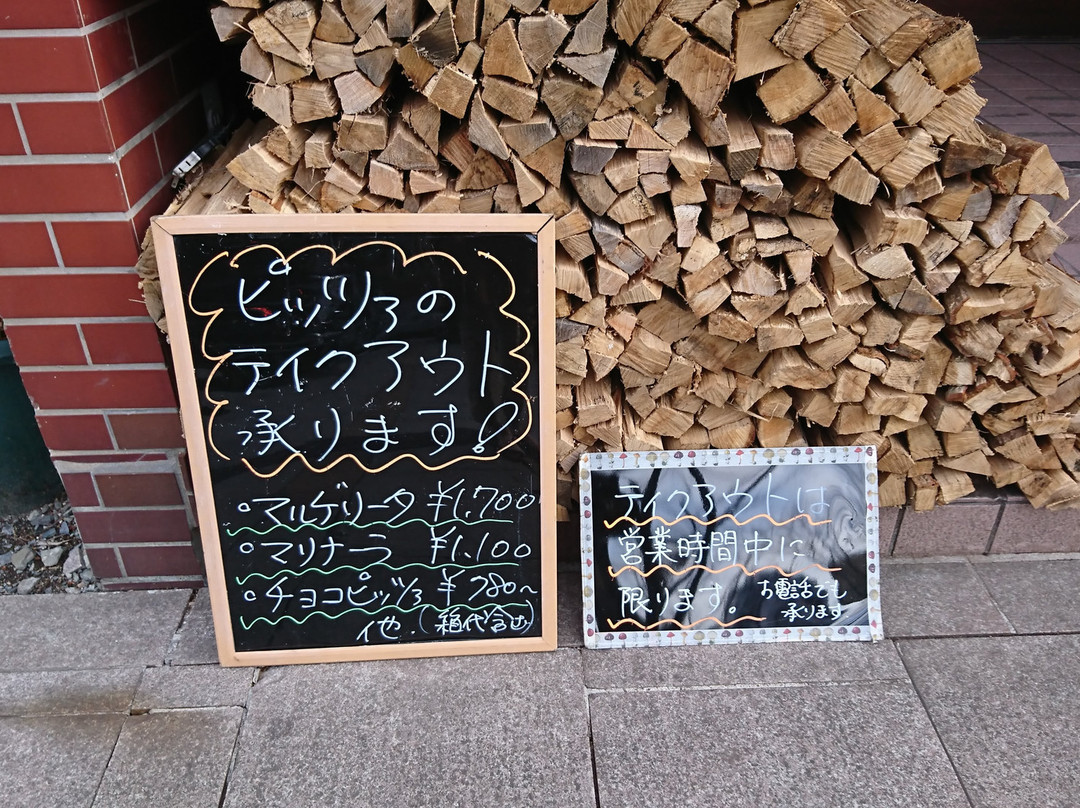 ピッツァの
テイクアウト
承ります!
・マルゲリータ ¥1,700
・マリナーラ ¥1,100
・チョコピッツァ ¥780〜
他.(箱代含む)
テイクアウトは
営業時間中に
限ります。
お電話でも
承ります